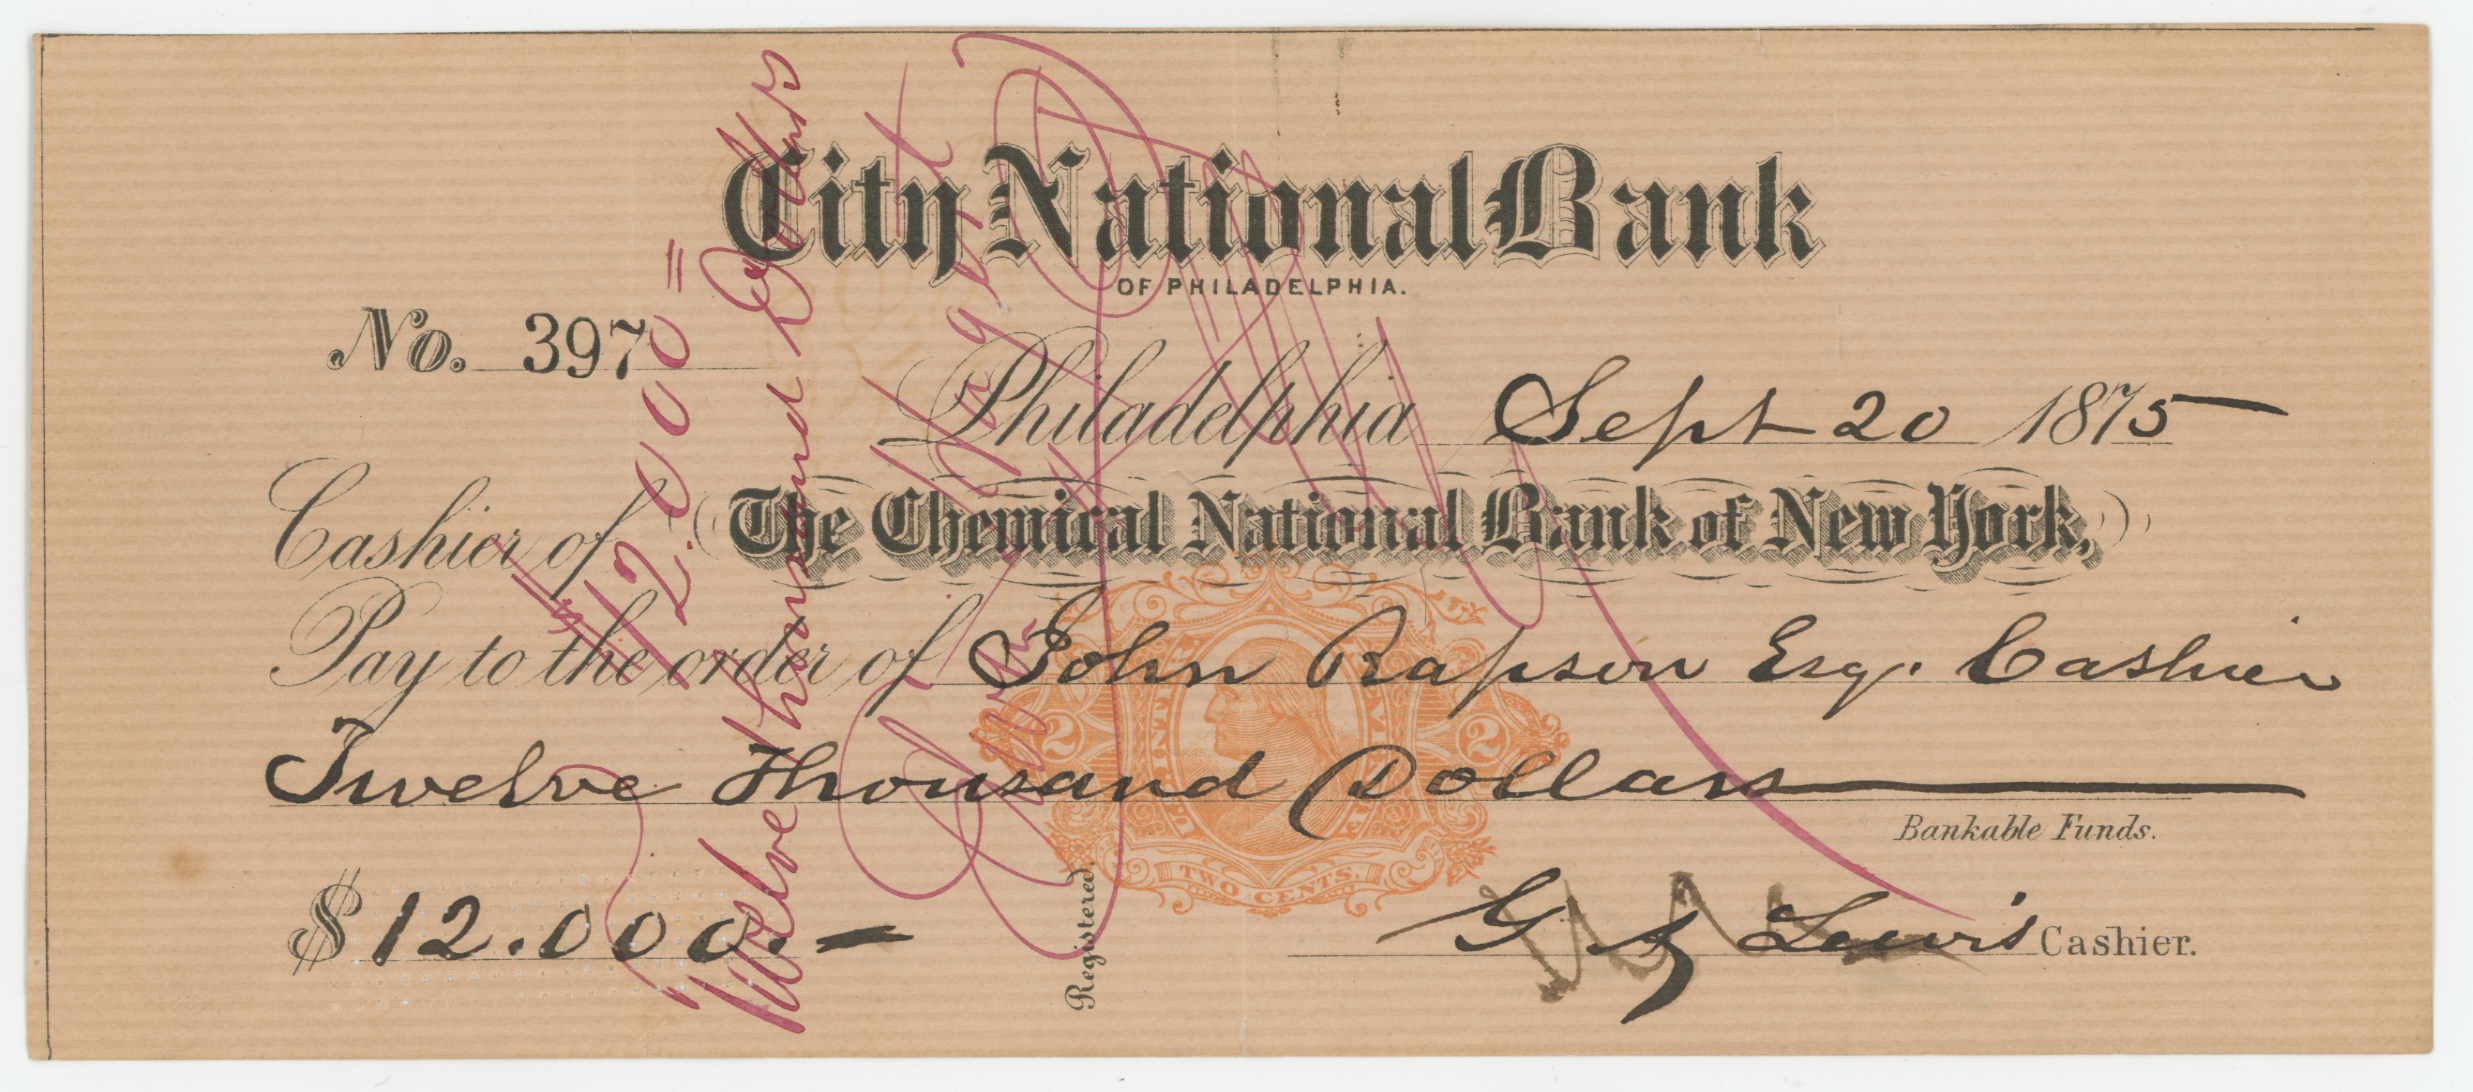 City National Bank
OF PHILADELPHIA.
No. 397
Philadelphia Sept 20 1875
Cashier of The Chemical National Bank of New York,
Pay to the order of John Rapson Esq. Cashier
Twelve Thousand Dollars
Bankable Funds.
$12.000.
Lewis Cashier.
Registered.
2 2
TWO CENTS.
$12.000=
Twelve thousand Dollars